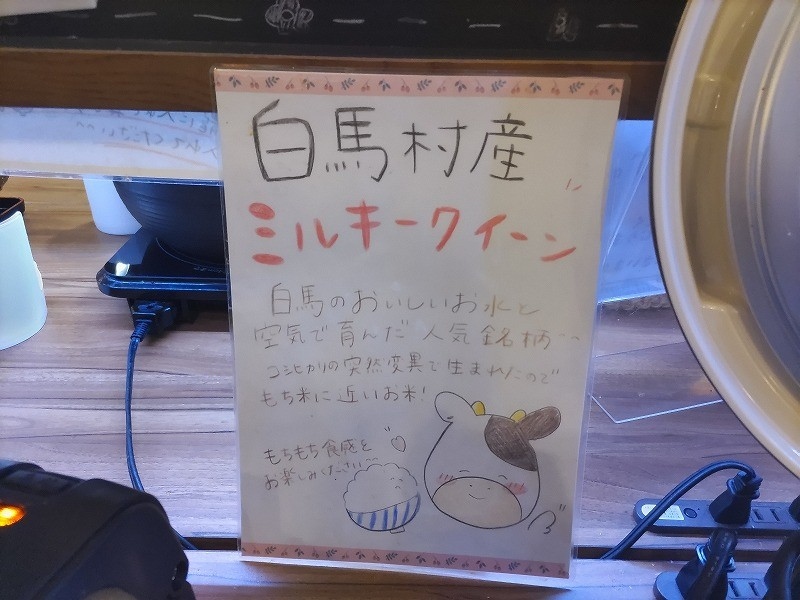 白馬村産
ミルキークイーン
白馬のおいしいお水と
空気で育んだ人気銘柄〜
コシヒカリの突然変異で生まれたので
もち米に近いお米!
もちもち食感を
お楽しみください〜